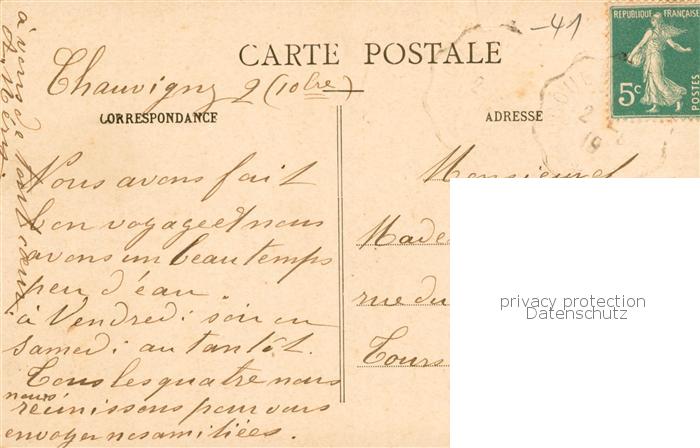 -41
REPUBLIQUE FRANÇAISE
5c
POSTES
CARTE POSTALE
Chauvigny 2 (10bre)
CORRESPONDANCE
ADRESSE
Nous avons fait
bon voyage et nous
avons un beau temps
peu d'eau
à Vendredi soir ou
samedi au tantôt.
Tous les quatre nous
nous
réunissons pour vous
envoyer nos amitiées.
à vous de tout cœur
Monsieur et
Made
rue du
Tours
privacy protection
Datenschutz